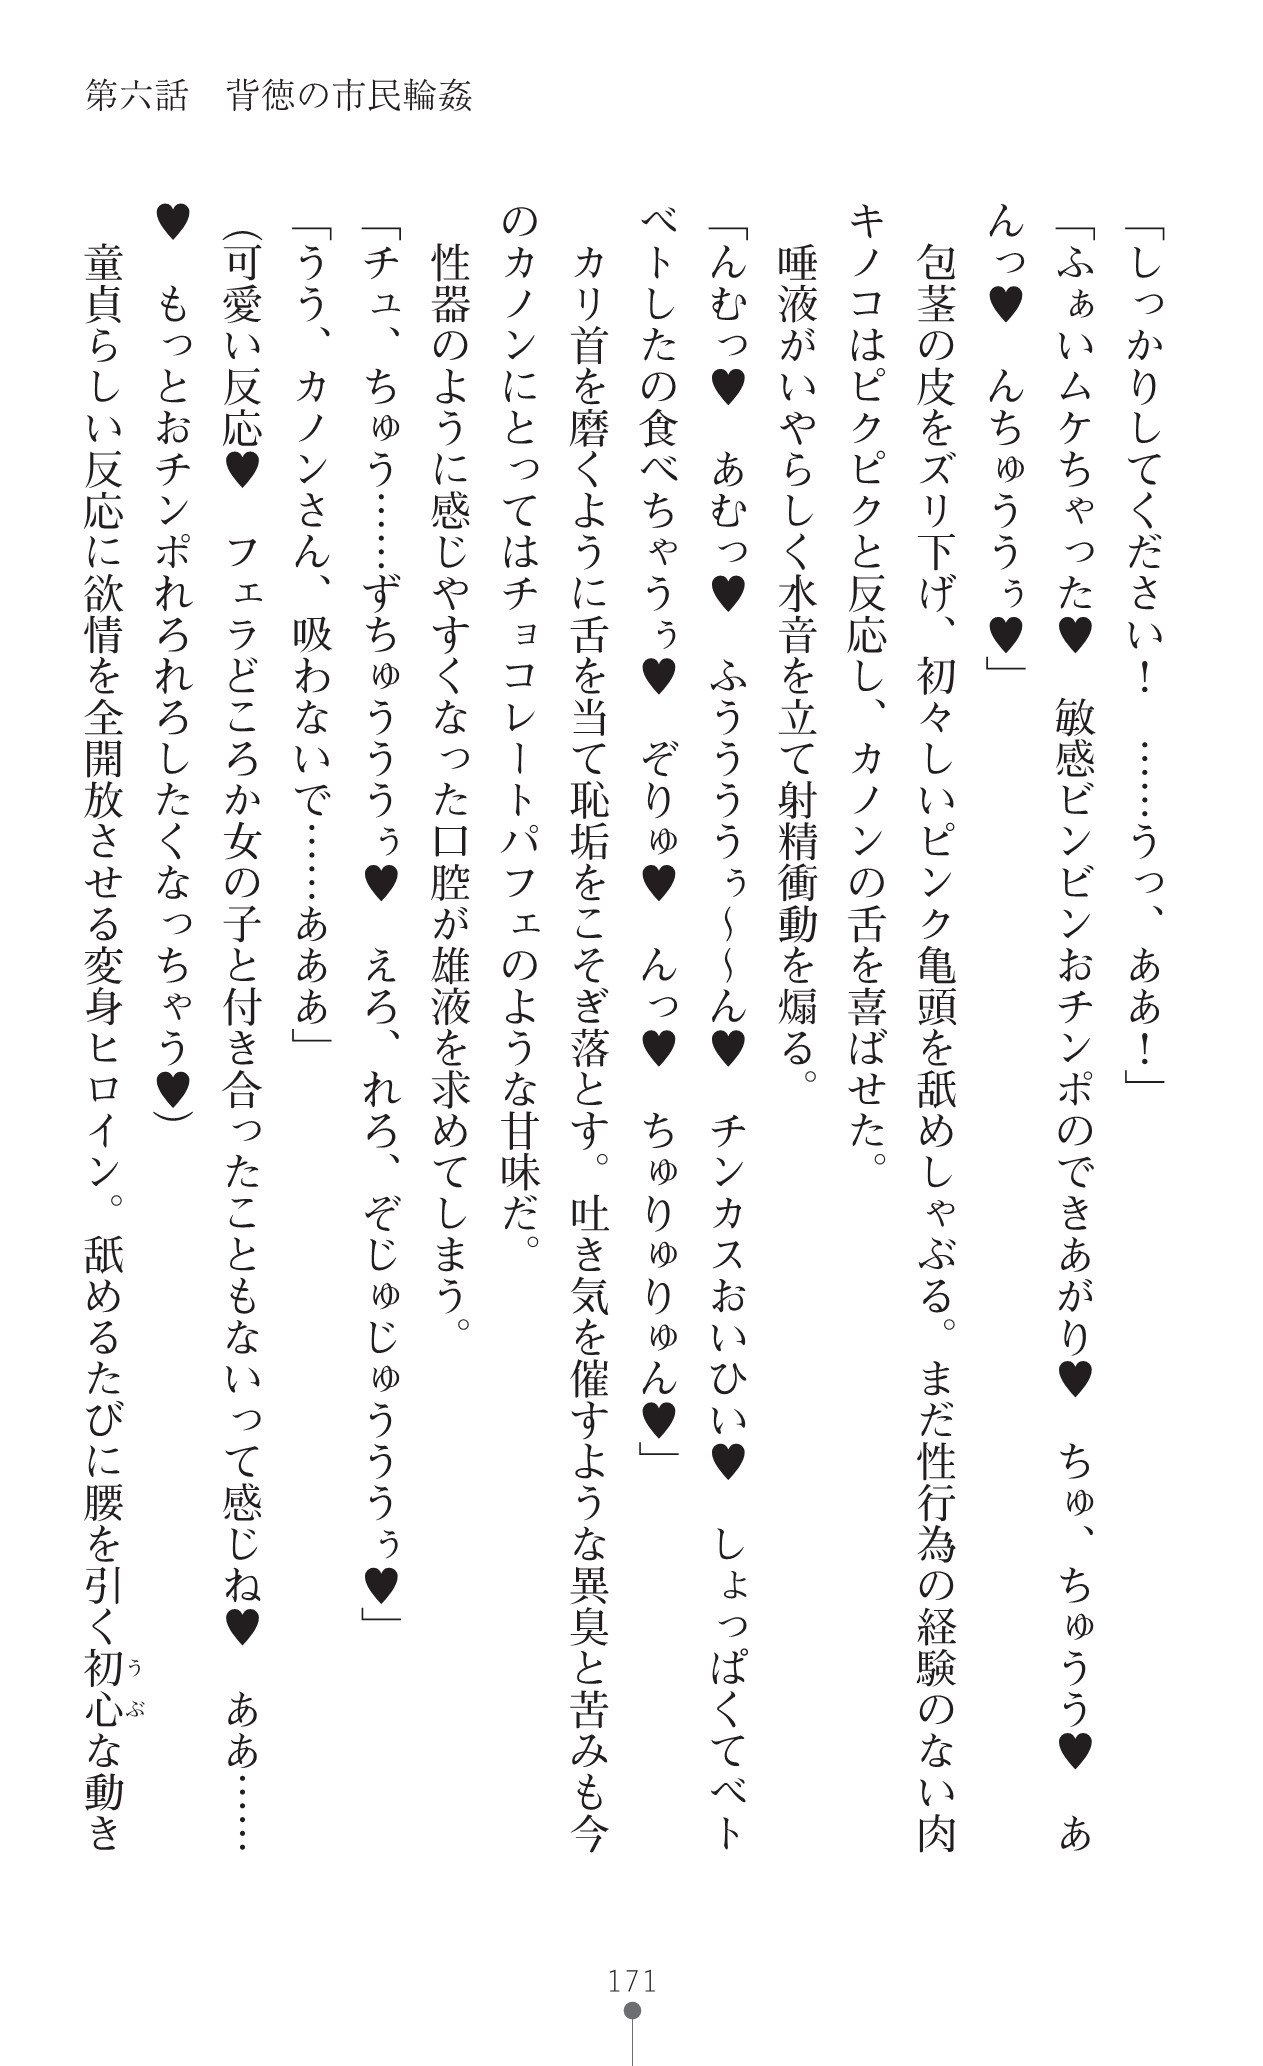 第六話　背徳の市民輪姦
「しっかりしてください！　……うっ、ああ！」
「ふぁいムケちゃった♥　敏感ビンビンおチンポのできあがり♥　ちゅ、ちゅうう♥　あ
んっ♥　んちゅううぅ♥」
　包茎の皮をズリ下げ、初々しいピンク亀頭を舐めしゃぶる。まだ性行為の経験のない肉
キノコはピクピクと反応し、カノンの舌を喜ばせた。
　唾液がいやらしく水音を立て射精衝動を煽る。
「んむっ♥　あむっ♥　ふうううぅ～～ん♥　チンカスおいひい♥　しょっぱくてベト
ベトしたの食べちゃうぅ♥　ぞりゅ♥　んっ♥　ちゅりゅりゅん♥」
　カリ首を磨くように舌を当て恥垢をこそぎ落とす。吐き気を催すような異臭と苦みも今
のカノンにとってはチョコレートパフェのような甘味だ。
　性器のように感じやすくなった口腔が雄液を求めてしまう。
「チュ、ちゅう……ずちゅうううぅ♥　えろ、れろ、ぞじゅじゅうううぅ♥」
「うう、カノンさん、吸わないで……あああ」
（可愛い反応♥　フェラどころか女の子と付き合ったこともないって感じね♥　ああ……
♥　もっとおチンポれろれろしたくなっちゃう♥）
　童貞らしい反応に欲情を全開放させる変身ヒロイン。舐めるたびに腰を引く初心な動き
うぶ
171